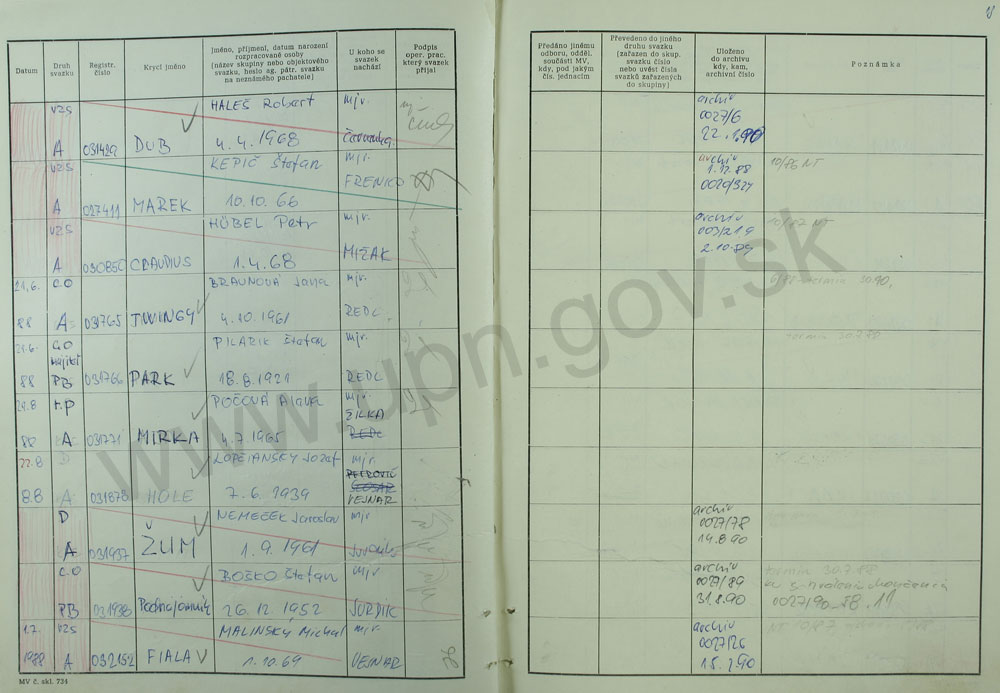 Datum
Druh svazku
Registr. číslo
Krycí jméno
Jméno, příjmení, datum narození
rozpracované osoby
(název skupiny nebo objektového
svazku, heslo ag. pátr. svazku
na neznámého pachatele)
U koho se
svazek
nachází
Podpis
oper. prac.
který svazek
přijal
Předáno jinému
odboru, odděl.
součásti MV,
kdy, pod jakým
čís. jednacím
Převedeno do jiného
druhu svazku
(zařazen do skup.
svazku číslo
nebo uvést čísla
svazků zařazených
do skupiny)
Uloženo
do archivu
kdy, kam,
archivní číslo
Poznámka
VZS HALEŠ Robert mjr.
A 031429 DUB 4. 4. 1968
archiv
0027/6
22. 1. 90
VZS KEPIČ Štefan mjr.
FRENKO
A 027411 MAREK 10. 10. 66
archiv
1. 12. 88
0020/324
10/86 NT
VZS HÜBEL Petr mjr.
A 030850 CLAUDIUS 1. 4. 68 MIŽAK
archiv
003/219
2. 10. 89
21.6. C.O BRAUNOVÁ Jana mjr.
88 A 031765 TWINGY 4. 10. 1961 REDL
21.6. C.O PILARIK Štefan mjr.
majiteľ
88 PB 031766 PARK 18. 8. 1921 REDL
termin 30.7.88
24.8 r.p POČOVÁ Alena mjr.
ŽILKA
88 A 031771 MIRKA 4. 7. 1965 REDL
22.8 D LOPČIANSKY Jozef mjr.
PETROVIČ
88 A 031878 HOLE 7. 6. 1939 VEJNAR
D NEMEČEK Jaroslav mjr
A 031937 ŽUM 1. 9. 1961
archiv
0027/78
14.8.90
C.O BOŠKO Štefan mjr
PB 031938 Podnajomník 26. 12. 1952 JURDIK
archiv
0027/89
31.8.90
termin 30.7.88
0027/90
1.7. VZS MALINSKÝ Michal mjr
1988 A 032152 FIALA 1. 10. 69 VEJNAR
archiv
0027/26
15. 2. 90
MV č. skl. 734
www.upn.gov.sk